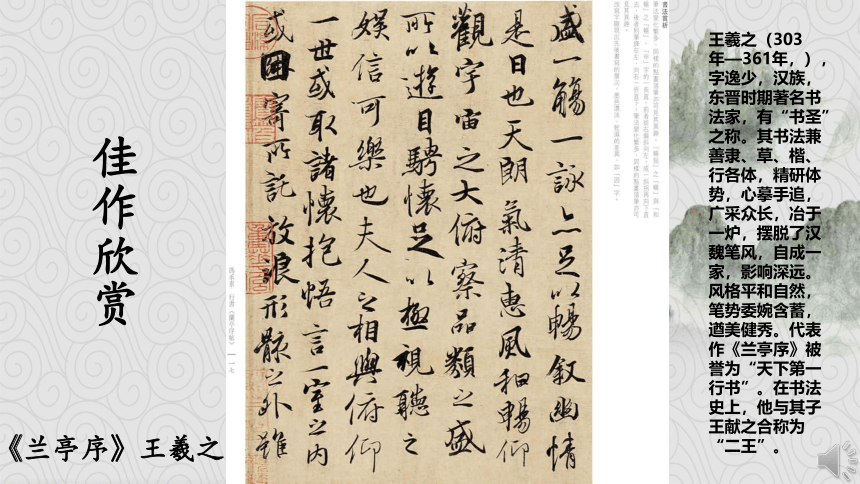 佳作欣赏
《兰亭序》王羲之
盛一觴一詠亦足以暢叙幽情
是日也天朗氣清惠風和暢仰
觀宇宙之大俯察品類之盛
所以遊目騁懷足以極視聽之
娱信可樂也夫人之相與俯仰
一世或取諸懷抱悟言一室之內
或因寄所託放浪形骸之外雖
書法賞析
馮承素 行書《蘭亭序帖》 一七
王羲之（303
年—361年，），
字逸少，汉族，
东晋时期著名书
法家，有“书圣”
之称。其书法兼
善隶、草、楷、
行各体，精研体
势，心摹手追，
广采众长，冶于
一炉，摆脱了汉
魏笔风，自成一
家，影响深远。
风格平和自然，
笔势委婉含蓄，
遒美健秀。代表
作《兰亭序》被
誉为“天下第一
行书”。在书法
史上，他与其子
王献之合称为
“二王”。